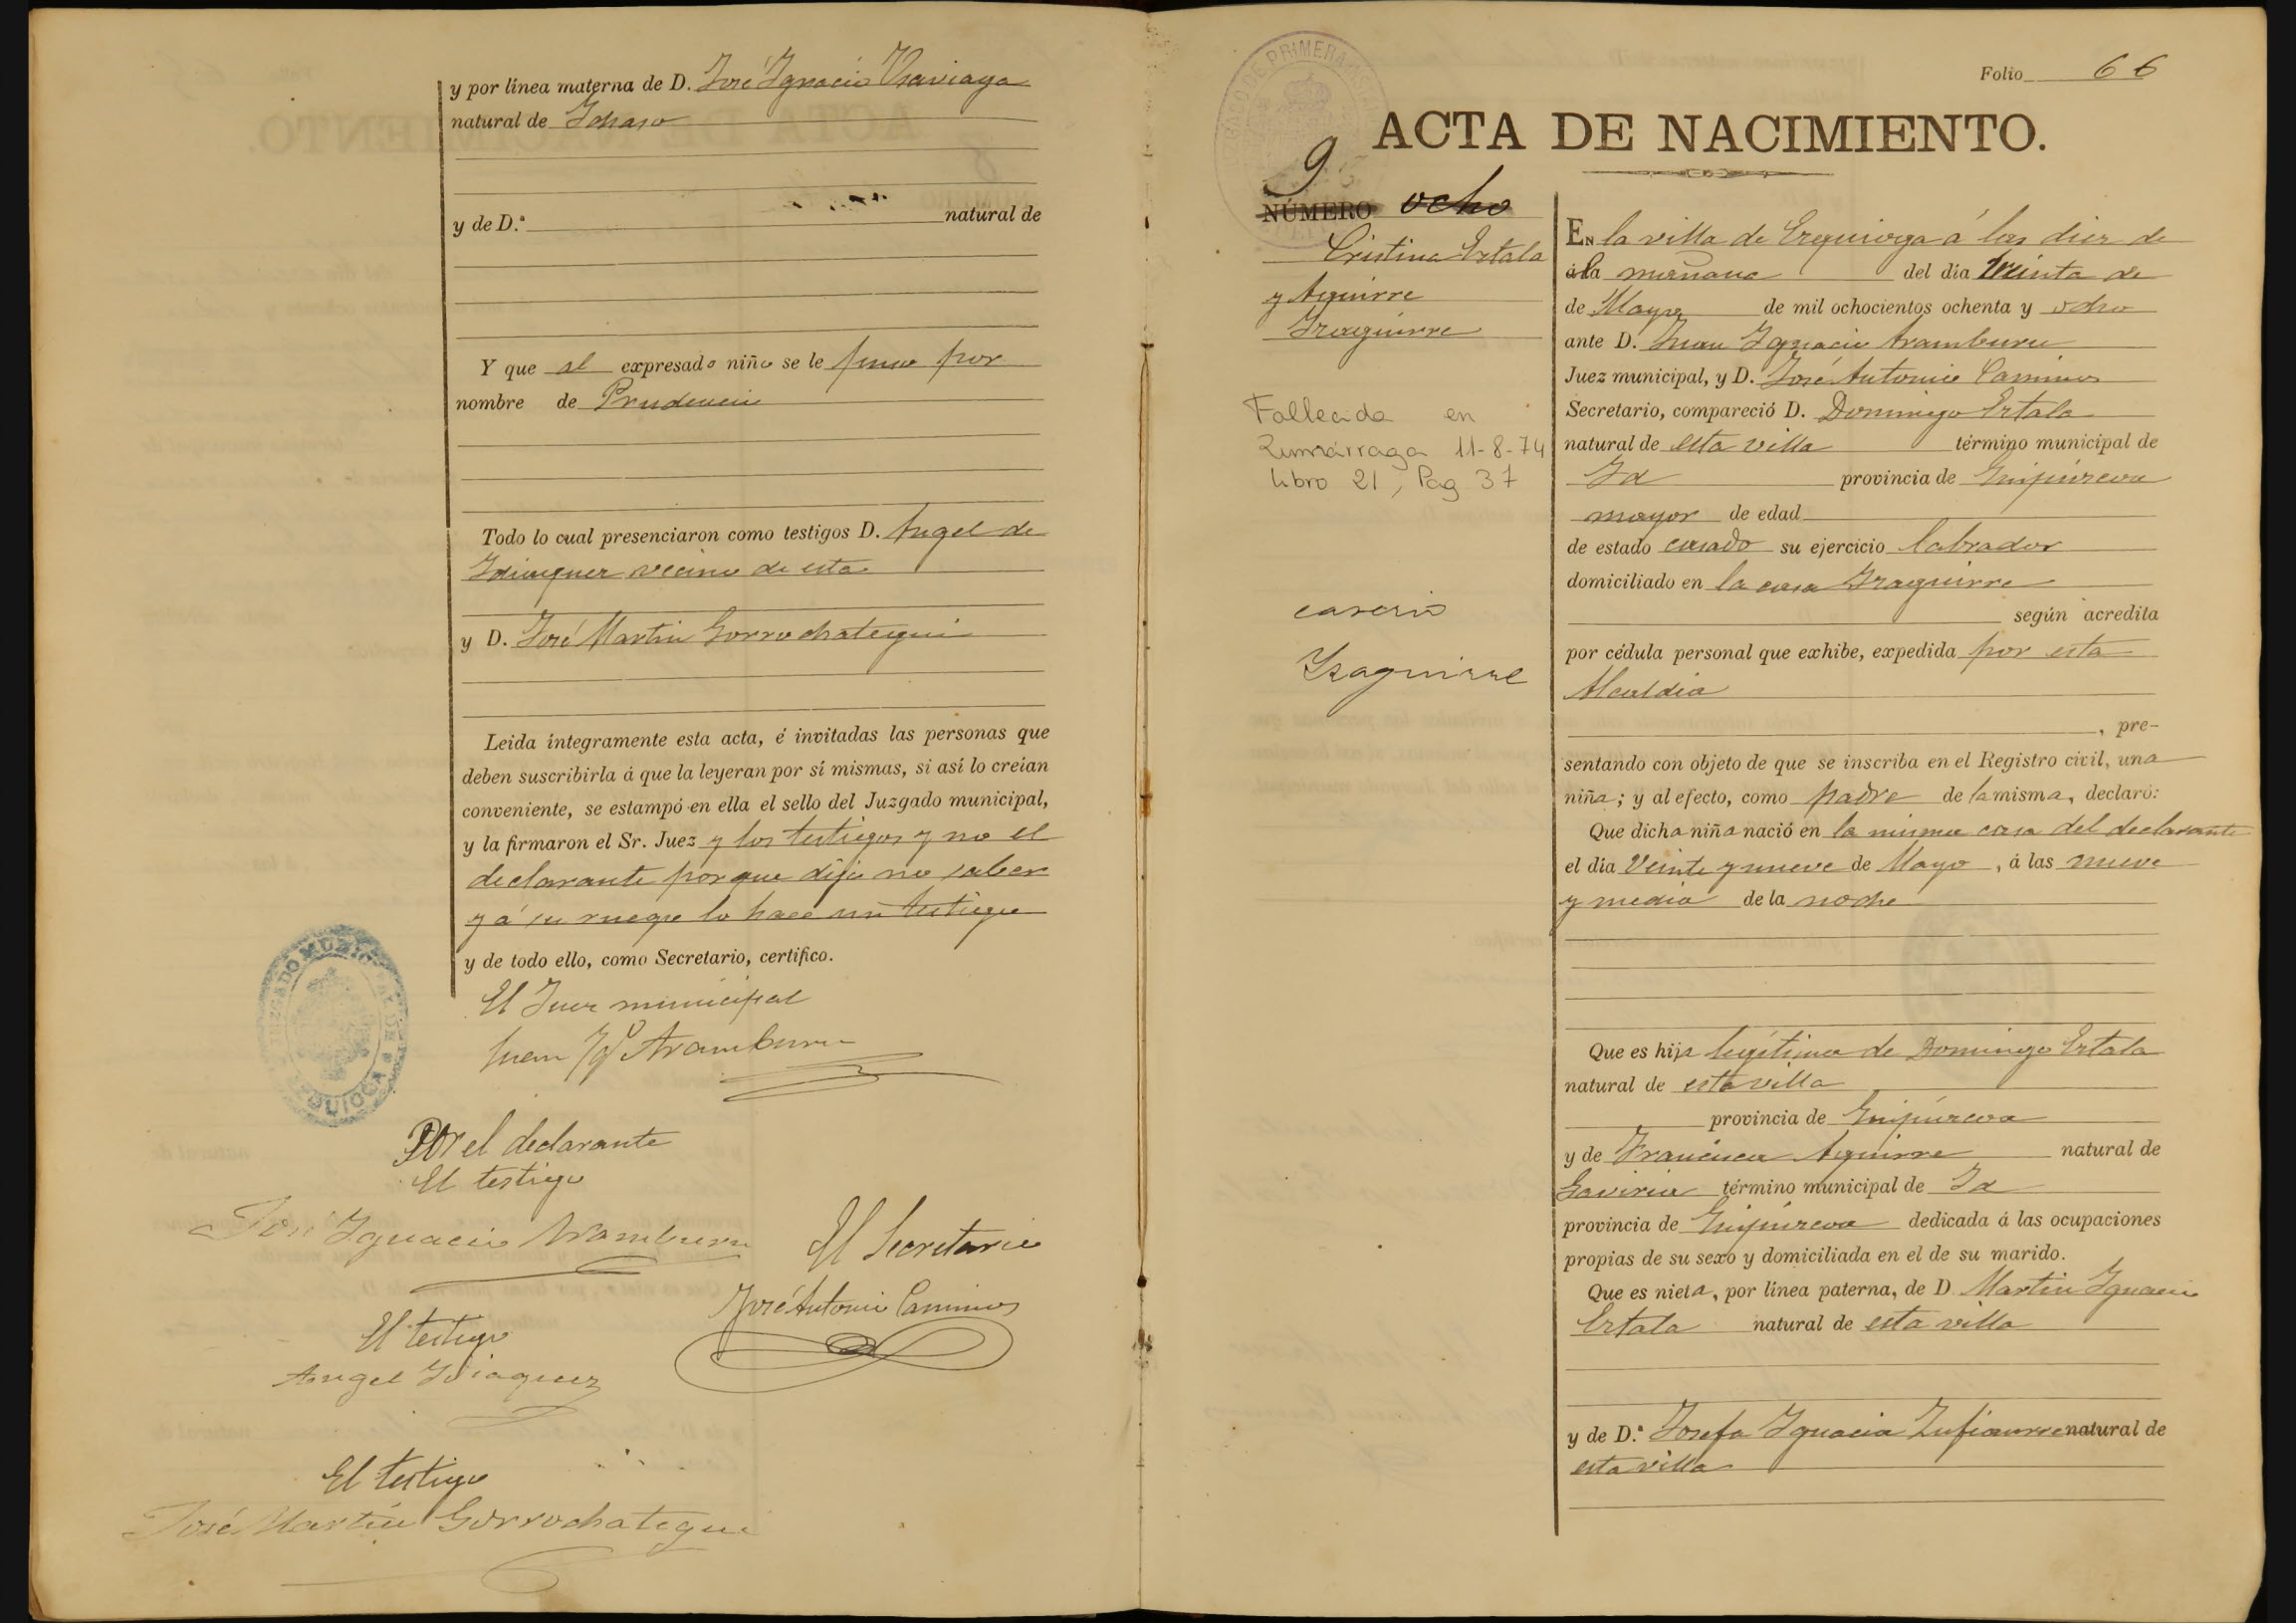 y por línea materna de D. José Ignacio Usaviaga
natural de Ichaso
y de D.ª natural de
Y que al expresado niño se le puso por
nombre de Prudencio
Todo lo cual presenciaron como testigos D. Angel de
Idiaquez vecino de esta
y D. José Martin Gorrochategui
Leida íntegramente esta acta, é invitadas las personas que
deben suscribirla á que la leyeran por sí mismas, si así lo creían
conveniente, se estampó en ella el sello del Juzgado municipal,
y la firmaron el Sr. Juez y los testigos y no el
declarante porque dijo no saber
y á su ruego lo hace un testigo
y de todo ello, como Secretario, certifico.
El Juez municipal
Juan Ig.º Aramburu
Por el declarante
El testigo
José Ignacio Aramburu
El Secretario
José Antonio Caminos
El testigo
Angel Idiaquez
El testigo
José Martin Gorrochategui
JUZGADO MUNICIPAL DE EZQUIOGA
Folio 66
ACTA DE NACIMIENTO.
9
NÚMERO ocho
Cristina Ertala
y Aguirre
Izaguirre
Fallecida en
Zumárraga 11-8-74
libro 21, Pag 37
caserio
Izaguirre
En la villa de Ezquioga á las diez de
la mañana del dia treinta de
de Mayo de mil ochocientos ochenta y ocho
ante D. Juan Ignacio Aramburu
Juez municipal, y D. José Antonio Caminos
Secretario, compareció D. Domingo Ertala
natural de esta villa término municipal de
Id provincia de Guipúzcoa
mayor de edad
de estado casado su ejercicio labrador
domiciliado en la casa Izaguirre
según acredita
por cédula personal que exhibe, expedida por esta
Alcaldia
, pre-
sentando con objeto de que se inscriba en el Registro civil, una
niña; y al efecto, como padre de la misma, declaró:
Que dicha niña nació en la misma casa del declarante
el día Veinte y nueve de Mayo, á las nueve
y media de la noche
Que es hija legítima de Domingo Ertala
natural de esta villa
provincia de Guipúzcoa
y de Francisca Aguirre natural de
Gaviria término municipal de Id
provincia de Guipúzcoa dedicada á las ocupaciones
propias de su sexo y domiciliada en el de su marido.
Que es nieta, por línea paterna, de D. Martin Ignacio
Ertala natural de esta villa
y de D.ª Josefa Ignacia Zufiaurre natural de
esta villa